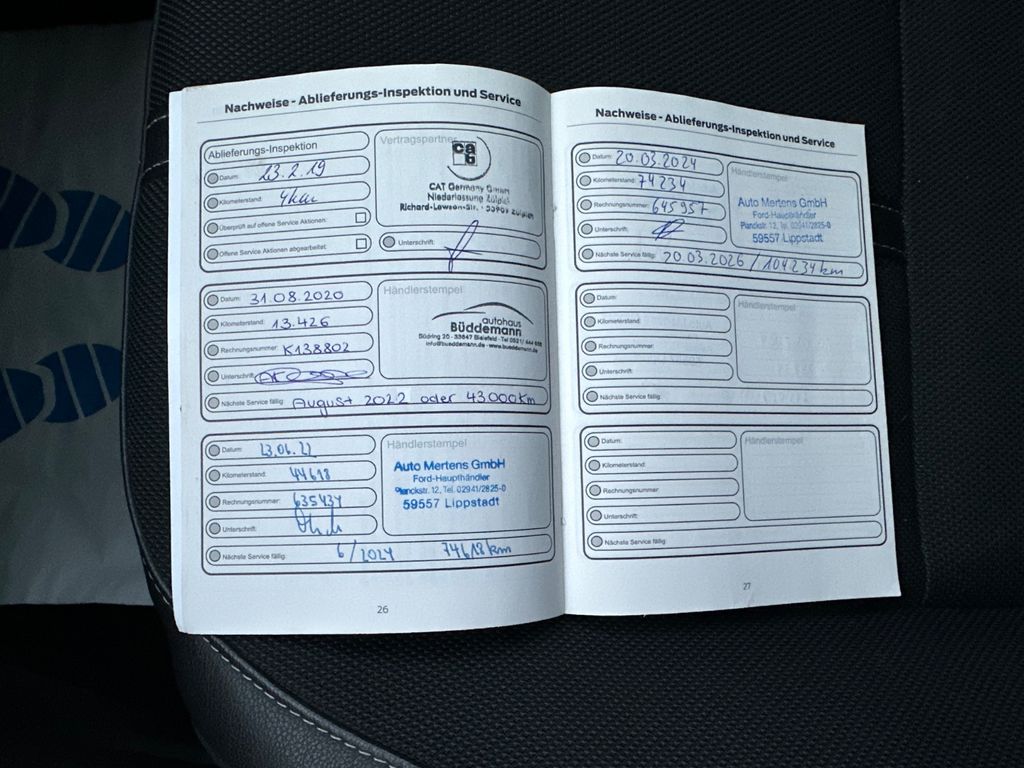 Nachweise - Ablieferungs-Inspektion und Service
Ablieferungs-Inspektion
Datum: 13.2.19
Kilometerstand: 4km
Überprüft auf offene Service Aktionen:
Offene Service Aktionen abgearbeitet:
Vertragspartner
cat
CAT Germany GmbH
Niederlassung Zülpich
Richard-Lawson-Str. · 53909 Zülpich
Unterschrift:
Datum: 31.08.2020
Kilometerstand: 13.426
Rechnungsnummer: K138802
Unterschrift:
Nächste Service fällig: August 2022 oder 43000km
Händlerstempel
autohaus
Büddemann
Büdring 20 · 33647 Bielefeld · Tel 0521/
info@bueddemann.de · www.bueddemann.de
Datum: 13.06.22
Kilometerstand: 44618
Rechnungsnummer: 635434
Unterschrift:
Nächste Service fällig: 6/2024 74618km
Händlerstempel
Auto Mertens GmbH
Ford-Haupthändler
Planckstr. 12, Tel. 02941/2825-0
59557 Lippstadt
26
Nachweise - Ablieferungs-Inspektion und Service
Datum: 20.03.2024
Kilometerstand: 74234
Rechnungsnummer: 645957
Unterschrift:
Nächste Service fällig: 20.03.2026 / 104234km
Händlerstempel
Auto Mertens GmbH
Ford-Haupthändler
Planckstr. 12, Tel. 02941/2825-0
59557 Lippstadt
Datum:
Kilometerstand:
Rechnungsnummer:
Unterschrift:
Nächste Service fällig:
Händlerstempel
Datum:
Kilometerstand:
Rechnungsnummer
Unterschrift:
Nächste Service fällig:
Händlerstempel
27